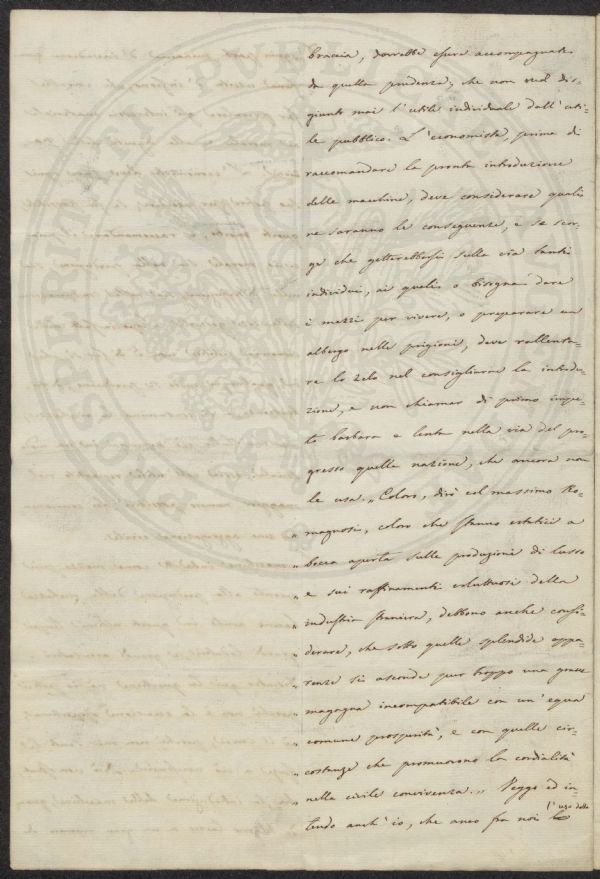 braccia, dovrebbe essere accompagnata
da quella prudenza, che non vede dis-
giunto mai l'utile individuale dall'uti-
le pubblico. L'economista, prima di
raccomandare la pronta introduzione
delle macchine, deve considerare quali
ne saranno le conseguenze, e se scor-
ge che getterebbonsi sulla via tanti
individui, ai quali o bisogna dare
i mezzi per vivere, o preparare un
albergo nelle prigioni, deve rallenta-
re lo zelo nel consigliarne la introdu-
zione, e non chiamar di primo impe-
to barbara e lenta nella via del pro-
gresso quella nazione, che ancora non
le usa. „Coloro, dirò col massimo Ro-
„ magnosi, coloro che stanno estatici a
„ bocca aperta sulle produzioni di lusso
„ e sui raffinamenti voluttuosi della
„ industria straniera, debbono anche consi-
„ derare, che sotto quelle splendide appa-
„ renze si asconde pur troppo una grave
„ magagna incompatibile con un'equa
„ comune prosperità, e con quelle cir-
„ costanze che promuovono la cordialità
„ nella civile convivenza„. Veggo ed in-
tendo anch'io, che anco fra noi l'uso delle